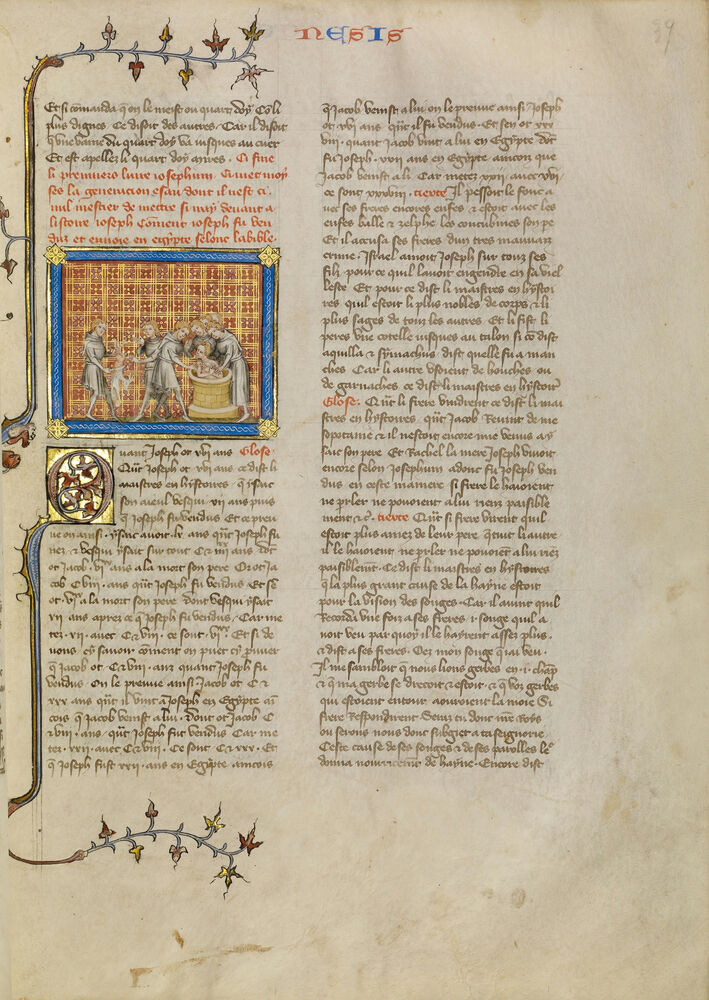 NESIS
39
Et si comanda q on le meist ou quart doy Co li
plus dignes Ce disoit des autres Car il disoit
qune vaine du quart doy va iusques au cuer
Et est apellez li quart doy anres. Ci fine
li premiers liure iosephum. Ci met moy
ses la generacion esau dont il nest ci
mestier de mettre si uay deuant a
listoire ioseph Coment ioseph fu ven
duz et enuoie en egypte selonc la bible
Quant Joseph ot xvi ans Glose
Qut Joseph ot xvi ans ce dist li
maistres en hystoires q ysaac
son aieul vesqui xii ans puis
q Joseph fu vendus Et ce preu
ue on ainsi. ysaac auoit lx ans qut Joseph fu
nez & vesqui ysaac sur tout C & ans dot
ot Jacob ans a la mort son pere Or ot Ja
cob C viii ans qut Joseph fu vendus Et se
ot a la mort son pere dont vesqui ysaac
xii ans aprez ce q Joseph fu vendus Car me
tez xii auec C & viii ce sont Et si de
uons cy sauoir coment on puet cy prouuer
q Jacob ot C & viii anz quant Joseph fu
vendus On le preuue ainsi Jacob ot C &
xxx ans qut il vint a Joseph en Egypte ain
cois q Jacob venist a lui dont ot Jacob C
& vii ans qut Joseph fut vendus Car me
tez xxii auec C & viii Ce sont C & xxx Et
q Joseph fust xxii ans en Egypte aincois
q Jacob venist a lui on le preuue ainsi Joseph
ot xvi ans qut il fu vendus Et sen ot xxx
viii quant Jacob vint a lui en Egypte dot
fu Joseph xxii ans en Egypte aincois que
Jacob venist a li Car metez xxii auec xvi
ce sont xxxviii. texte Il pessoit le fonc a
uec ses freres encores enfes & estoit auec les
enfes balle & zelphe les concubines son pe
Et il accusa ses freres dun tres mauuaiz
crime. Israel amoit Joseph sur touz ses
filz pour ce quil lauoit engendre en sa viel
lesce Et pour ce dist li maistres en hystoi
res quil estoit li plus nobles de corps & li
plus sages de touz les autres Et li fist li
peres vne cotelle iusques au talon si co dist
aquilla & symachus dist quelle fu a man
ches Car li autre vsoient de houches ou
de garnaches ce dist li maistres en hystoir
Glose. Qut li frere vindrent ce dist li mai
stres en hystoires qut Jacob Reuint de me
sopotaine & il nestoit encore mie venus a y
saac son pere Et Rachel la mere Joseph viuoit
encore selon Josephum adonc fu Joseph ven
dus en ceste maniere si frere le haioient
ne parler ne pouoient a lui riens paisible
ment &c. texte Qut si frere virent quil
estoit plus amez de leur pere q tuit li autre
il le haioient ne parler ne pouoiet a lui riez
paisiblemt Ce dist li maistres en hystoires
q la plus grant cause de la hayne estoit
pour la vision des songes. Car il auint quil
Recorda vne foiz a ses freres .i. songe quil a
uoit veu par quoy il le hayrent assez plus
& dist a ses freres. Oez mon songe q iai veu
Il me sambloit q nous lions gerbes en .i. chap
& q ma gerbe se drecoit & estoit & q voz gerbes
qui estoient entour aouroient la moie Si
frere Respondirent Seras tu donc nre Roys
ou serons nous dont subgiet a ta seignorie
Ceste cause de ses songes & de ses parolles le
donna nourricemt de hayne Encore dist